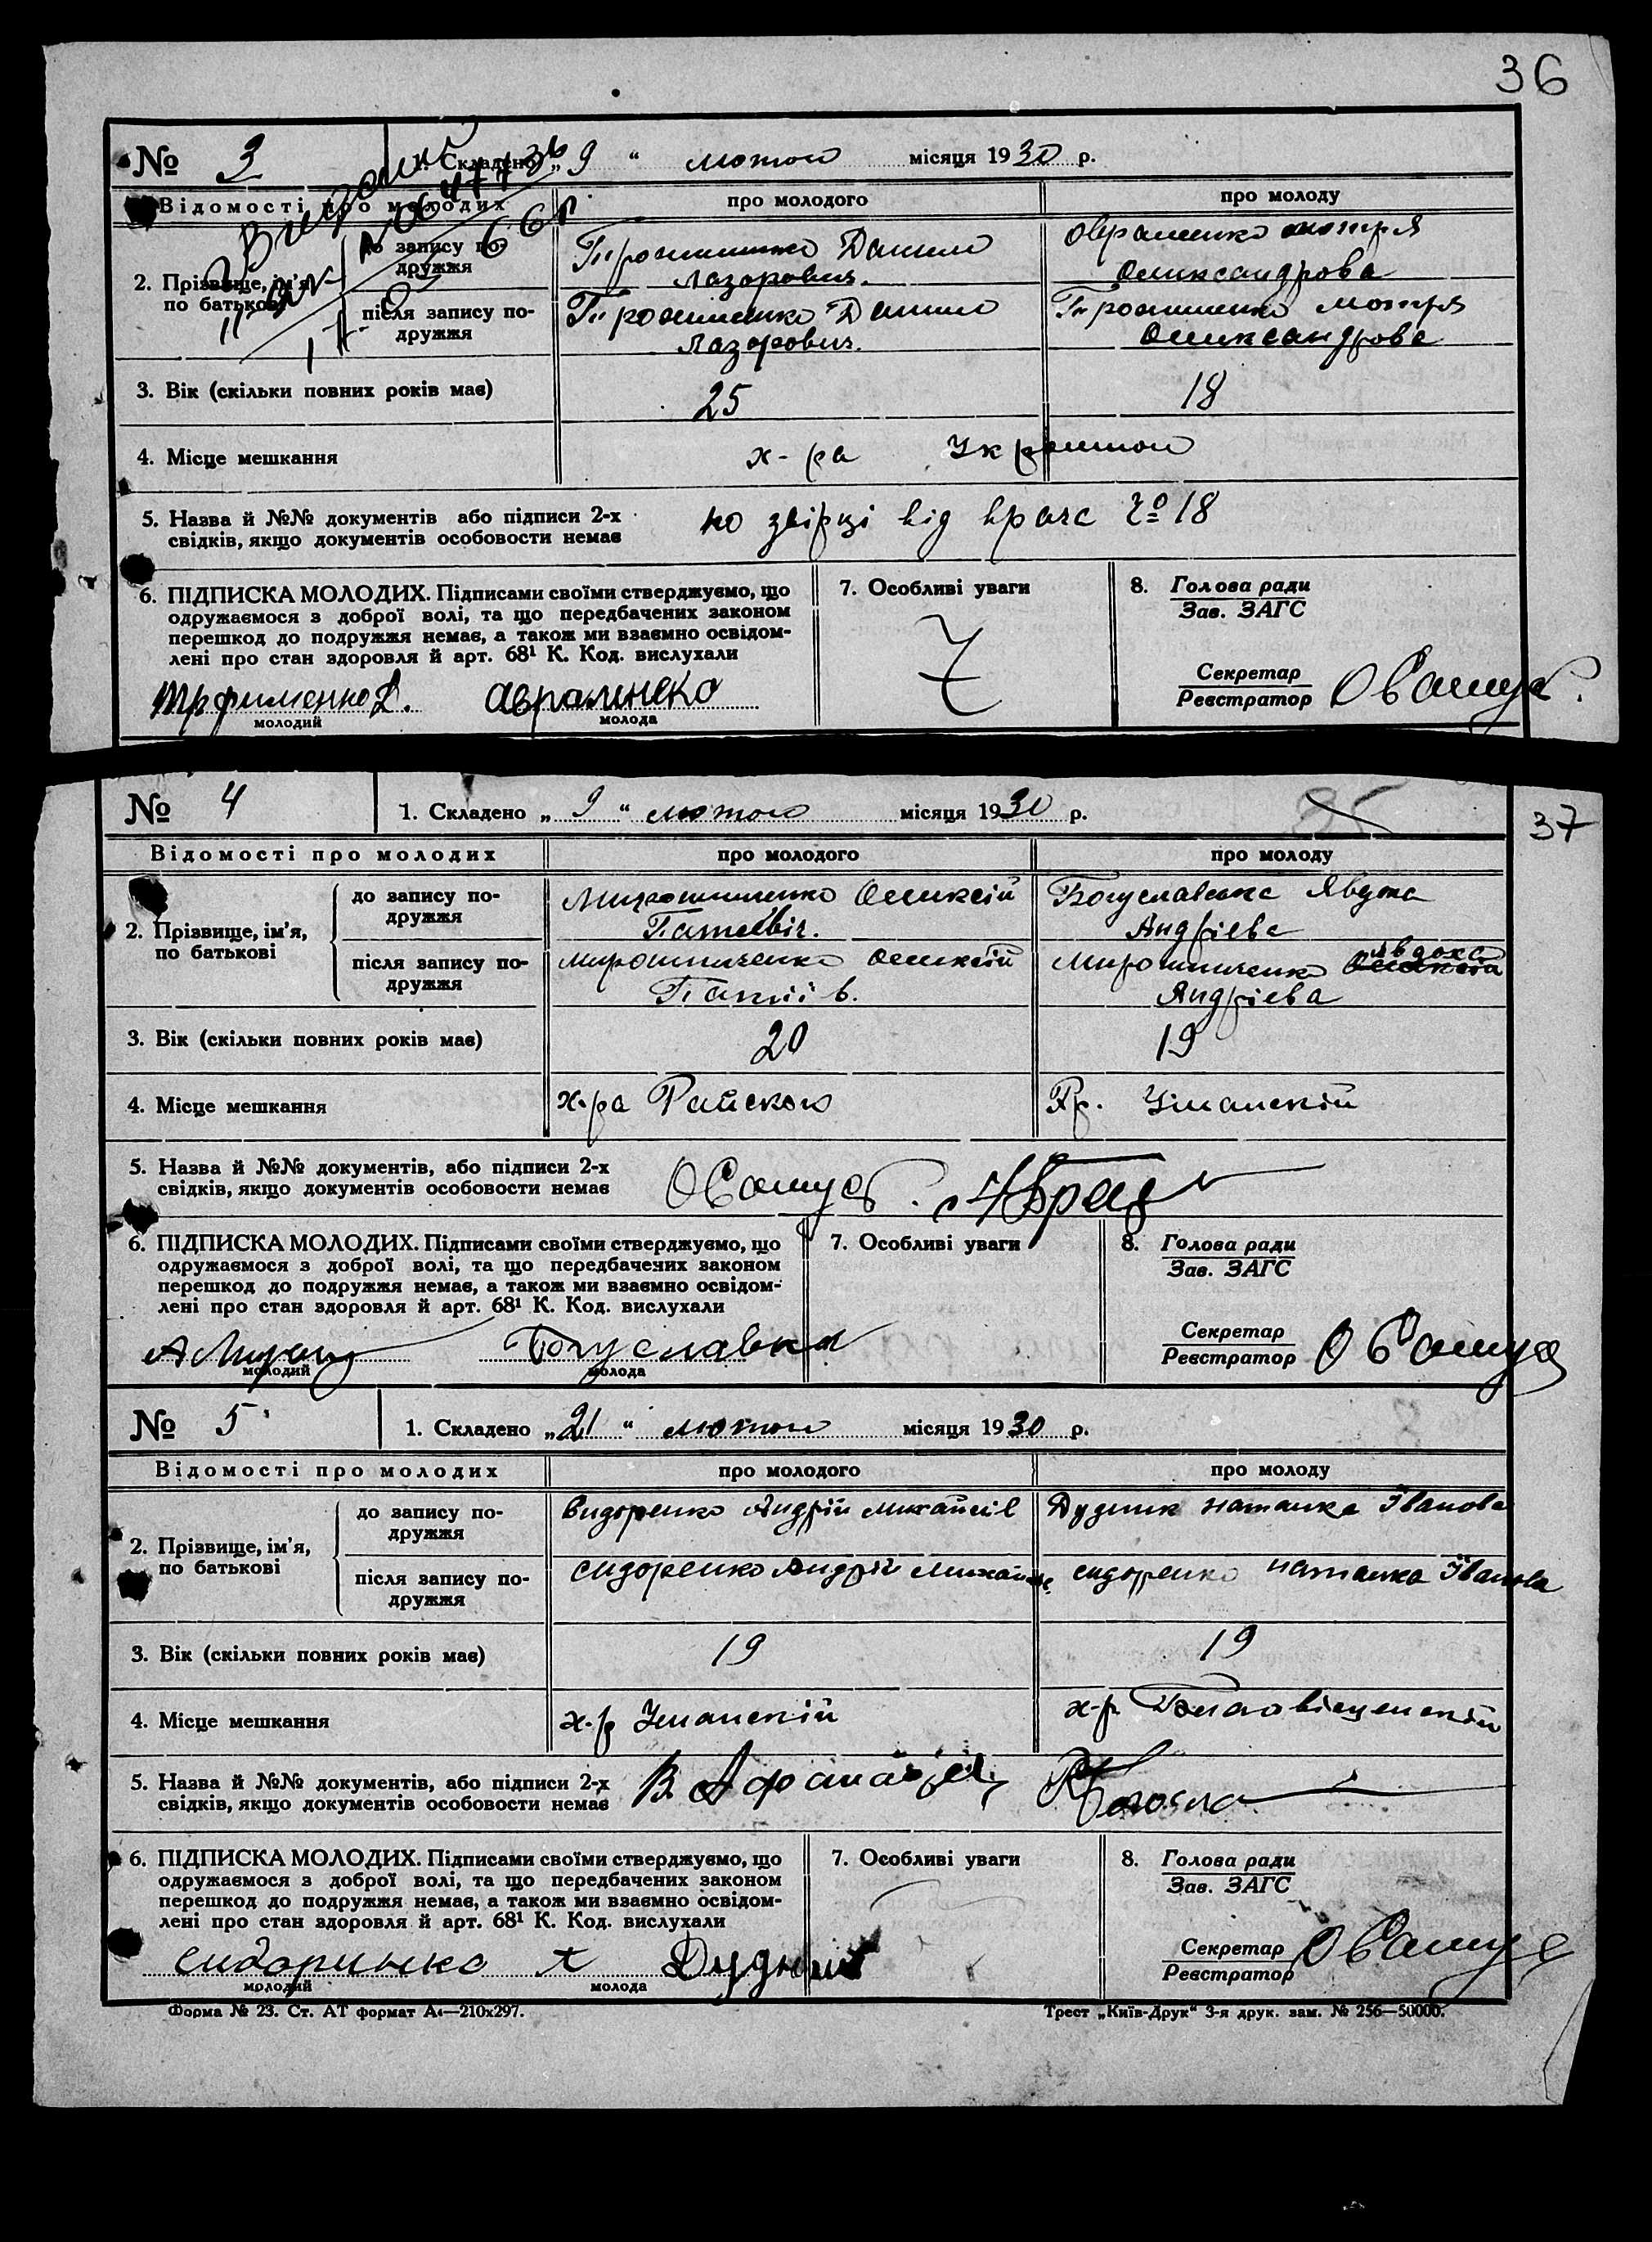 36
№ 3 1. Складено „9“ лютого місяця 1930 р.
Відомості про молодих про молодого про молоду
2. Прізвище, ім'я, по батькові
до запису подружжя Данило Лазорович. Авраменко мотря Олександрова
після запису подружжя Данило Лазорович. мотря Олександрова
3. Вік (скільки повних років має) 25 18
4. Місце мешкання х-ра
5. Назва й №№ документів або підписи 2-х
свідків, якщо документів особовости немає по звірці від врача № 18
6. ПІДПИСКА МОЛОДИХ. Підписами своїми стверджуємо, що
одружаємося з доброї волі, та що передбачених законом
перешкод до подружжя немає, а також ми взаємно освідом-
лені про стан здоровля й арт. 68¹ К. Код. вислухали
7. Особливі уваги
8. Голова ради
Зав. ЗАГС
Секретар
Реєстратор
Авраменко
молодий молода
37
№ 4 1. Складено „9“ лютого місяця 1930 р.
Відомості про молодих про молодого про молоду
2. Прізвище, ім'я,
по батькові
до запису по-
дружжя Мирошниченко Олексій Богуславська Явдоха
Андрієва
після запису по-
дружжя Мирошниченко Олексій Мирошниченко Явдоха
Андрієва
3. Вік (скільки повних років має) 20 19
4. Місце мешкання х-ра Райского Хр. Уманский
5. Назва й №№ документів, або підписи 2-х
свідків, якщо документів особовости немає
6. ПІДПИСКА МОЛОДИХ. Підписами своїми стверджуємо, що
одружаємося з доброї волі, та що передбачених законом
перешкод до подружжя немає, а також ми взаємно освідом-
лені про стан здоровля й арт. 68¹ К. Код. вислухали
7. Особливі уваги
8. Голова ради
Зав. ЗАГС
Секретар
Реєстратор
молодий молода
№ 5 1. Складено „21“ лютого місяця 1930 р.
Відомості про молодих про молодого про молоду
2. Прізвище, ім'я,
по батькові
до запису по-
дружжя Сидоренко Андрій Дудник наталка Іванова
після запису по-
дружжя сидоренко Андрій сидоренко наталка Іванова
3. Вік (скільки повних років має) 19 19
4. Місце мешкання х-р Уманскій х-р
5. Назва й №№ документів, або підписи 2-х
свідків, якщо документів особовости немає
6. ПІДПИСКА МОЛОДИХ. Підписами своїми стверджуємо, що
одружаємося з доброї волі, та що передбачених законом
перешкод до подружжя немає, а також ми взаємно освідом-
лені про стан здоровля й арт. 68¹ К. Код. вислухали
7. Особливі уваги
8. Голова ради
Зав. ЗАГС
Секретар
Реєстратор
сидоринко Дудник
молодий молода
Форма № 23. Ст. АТ формат А4—210х297. Трест „Київ-Друк“ 3-я друк. зам. № 256—50000.